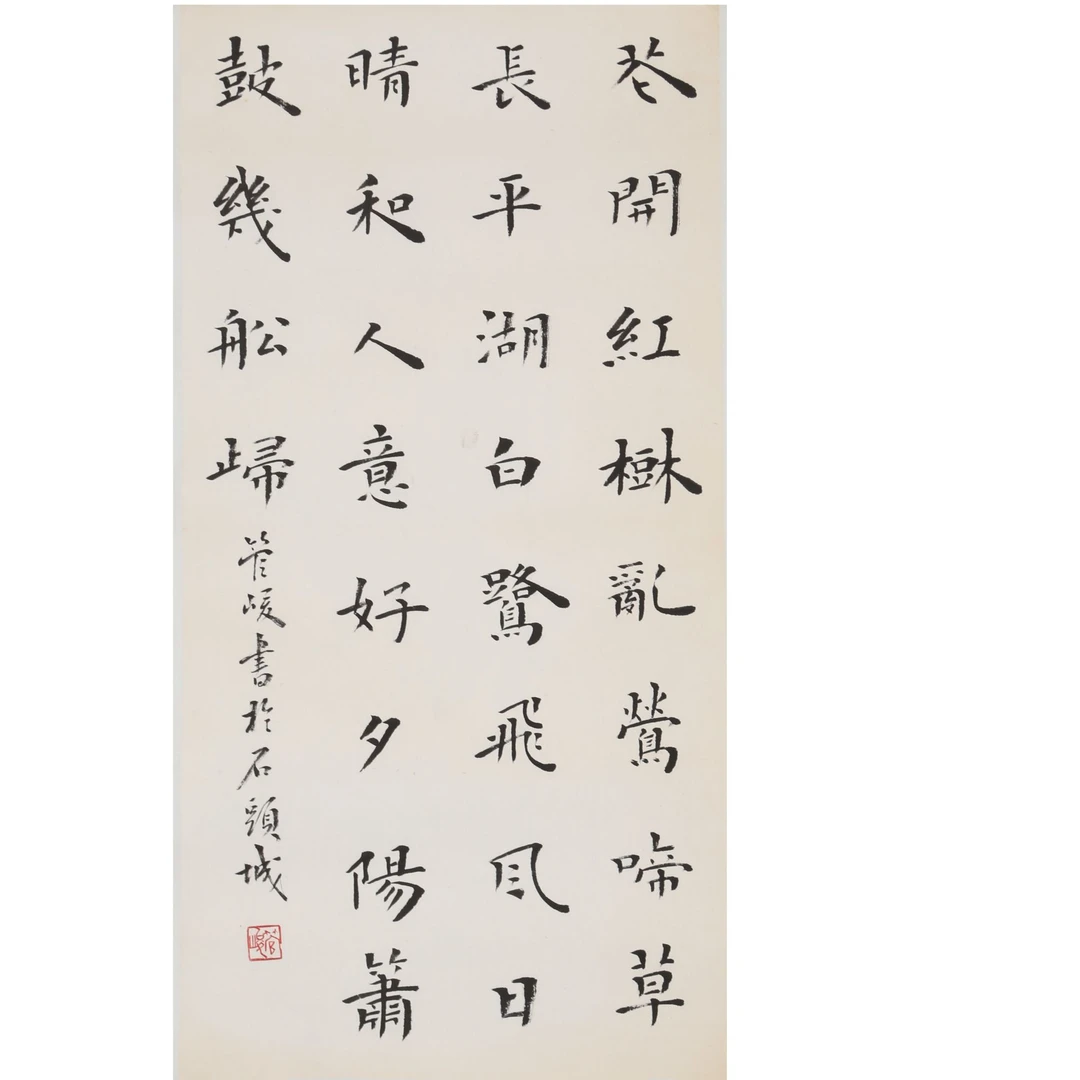 花開紅樹亂鶯啼草
長平湖白鷺飛風日
晴和人意好夕陽簫
鼓幾船歸
管峻書於石頭城
管峻